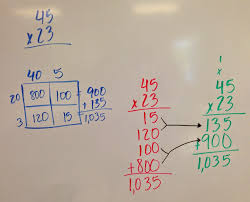 45
x 23
40 5
20 800 100 = 900
3 120 15 = +135
1,035
45
x 23
15
120
100
+ 800
1,035
1
x
45
x 23
135
+ 900
1,035